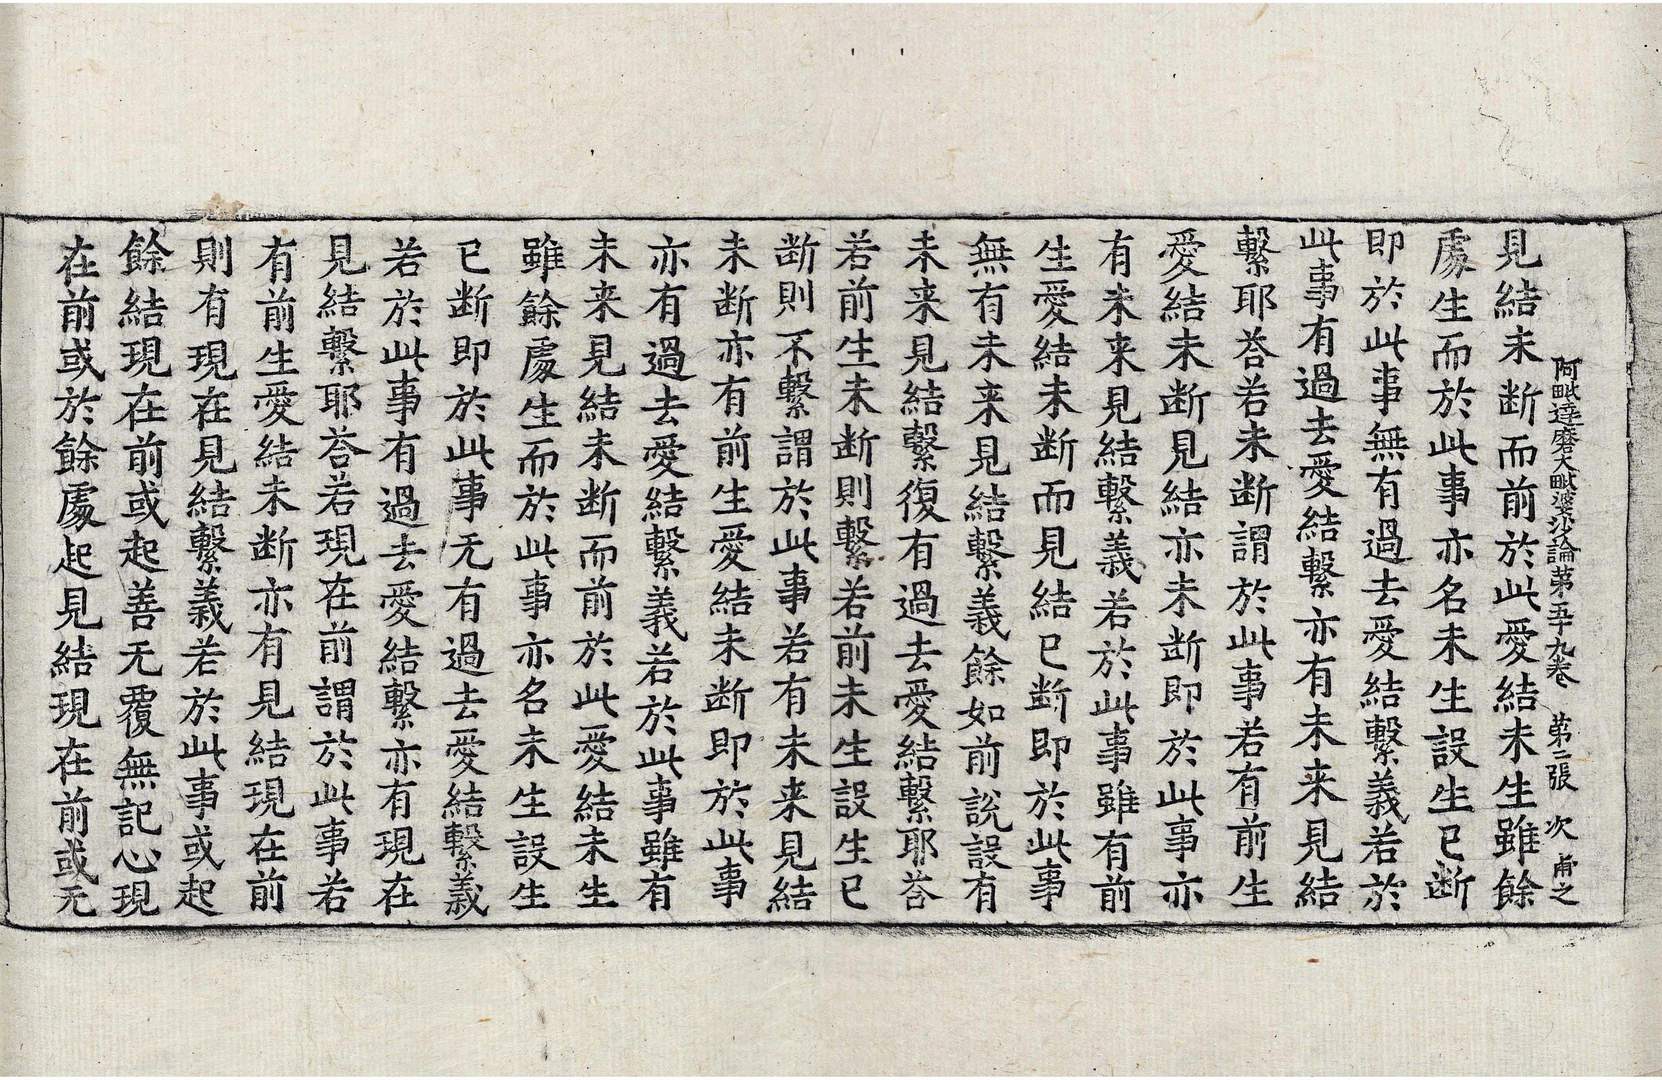 阿毗達磨大毗婆沙論第五十九卷　第二張　次　甫之
見結未断而前於此愛結未生雖餘
處生而於此事亦名未生設生已断
即於此事無有過去愛結繫義若於
此事有過去愛結繫亦有未来見結
繫耶荅若未断謂於此事若有前生
愛結未断見結亦未断即於此事亦
有未来見結繫義若於此事雖有前
生愛結未断而見結已断即於此事
無有未来見結繫義餘如前說設有
未来見結繫復有過去愛結繫耶荅
若前生未断則繫若前未生設生已
断則不繫謂於此事若有未来見結
未断亦有前生愛結未断即於此事
亦有過去愛結繫義若於此事雖有
未来見結未断而前於此愛結未生
雖餘處生而於此事亦名未生設生
已断即於此事无有過去愛結繫義
若於此事有過去愛結繫亦有現在
見結繫耶荅若現在前謂於此事若
有前生愛結未断亦有見結現在前
則有現在見結繫義若於此事或起
餘結現在前或起善无覆無記心現
在前或於餘處起見結現在前或无